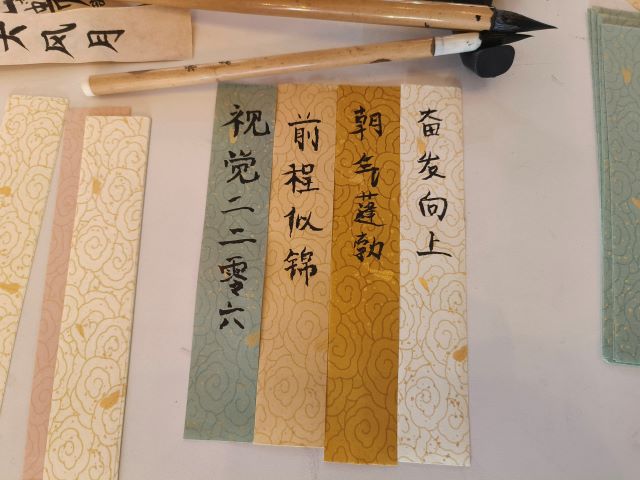 风月
奋发向上
朝气蓬勃
前程似锦
视觉二二零六